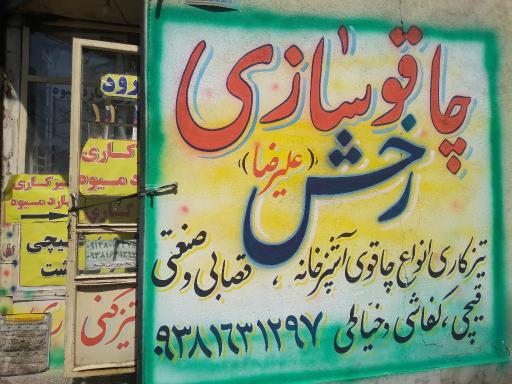 چاقوسازی
رخش
(علیرضا)
تیزکاری انواع چاقوی آشپزخانه ، قصابی و صنعتی
قیچی ، کفاشی و خیاطی ۰۹۳۸۱۶۳۱۲۹۷
ورود
کاری
کارد میوه
تیز کاری
کارد میوه
قیچی
تیزکنی